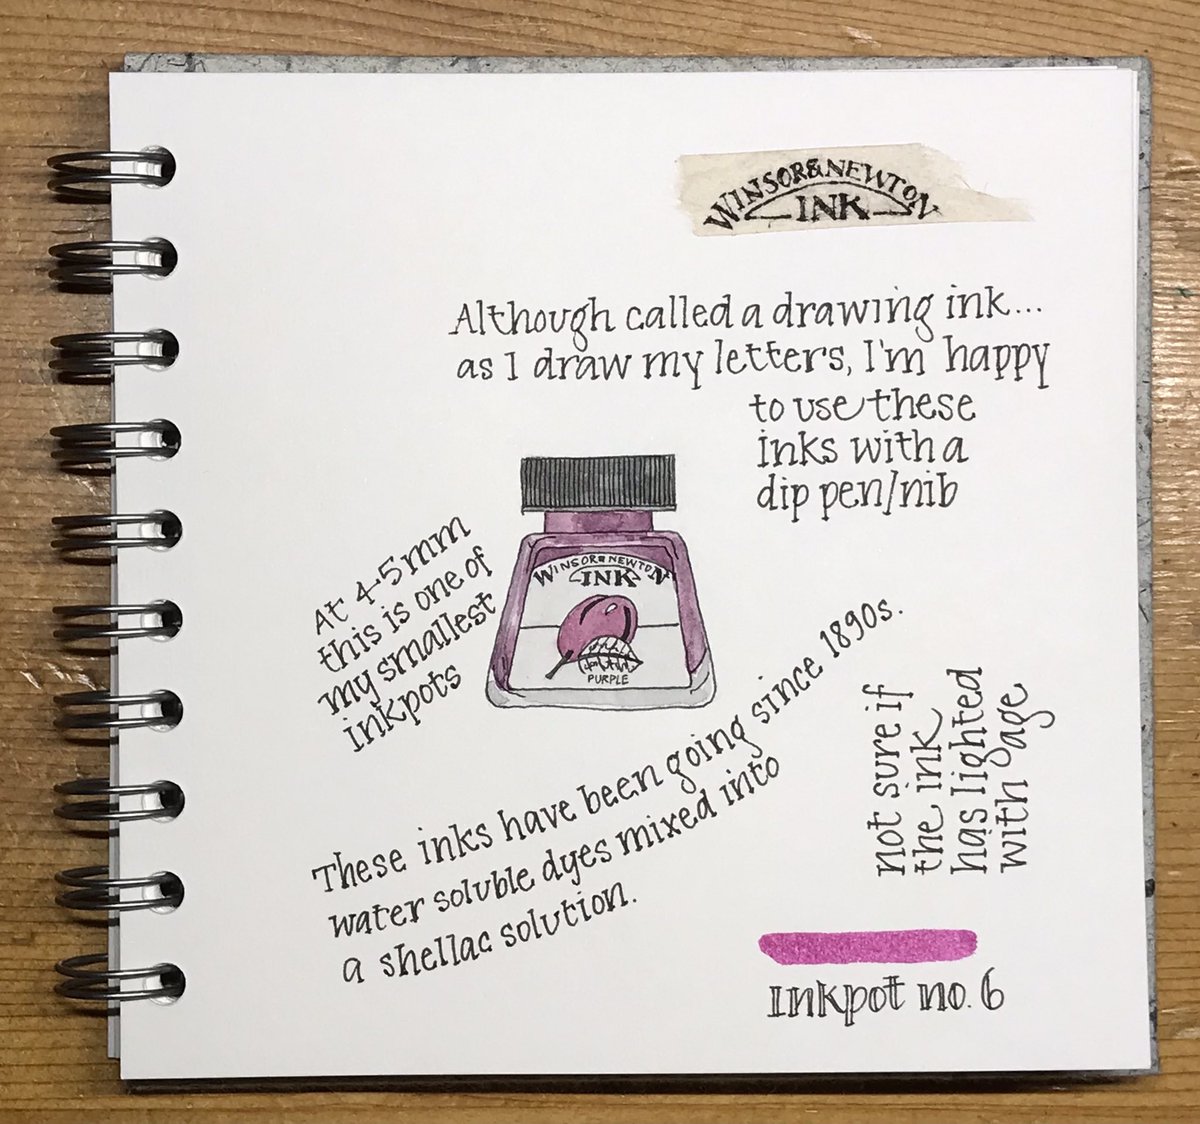 WINSOR & NEWTON
INK
Although called a drawing ink...
as I draw my letters, I'm happy
to use these
inks with a
dip pen/nib
At 45mm
this is one of
my smallest
inkpots
WINSOR & NEWTON
INK
PURPLE
These inks have been going since 1890s.
water soluble dyes mixed into
a shellac solution.
not sure if
the ink
has lighted
with age
Inkpot no. 6